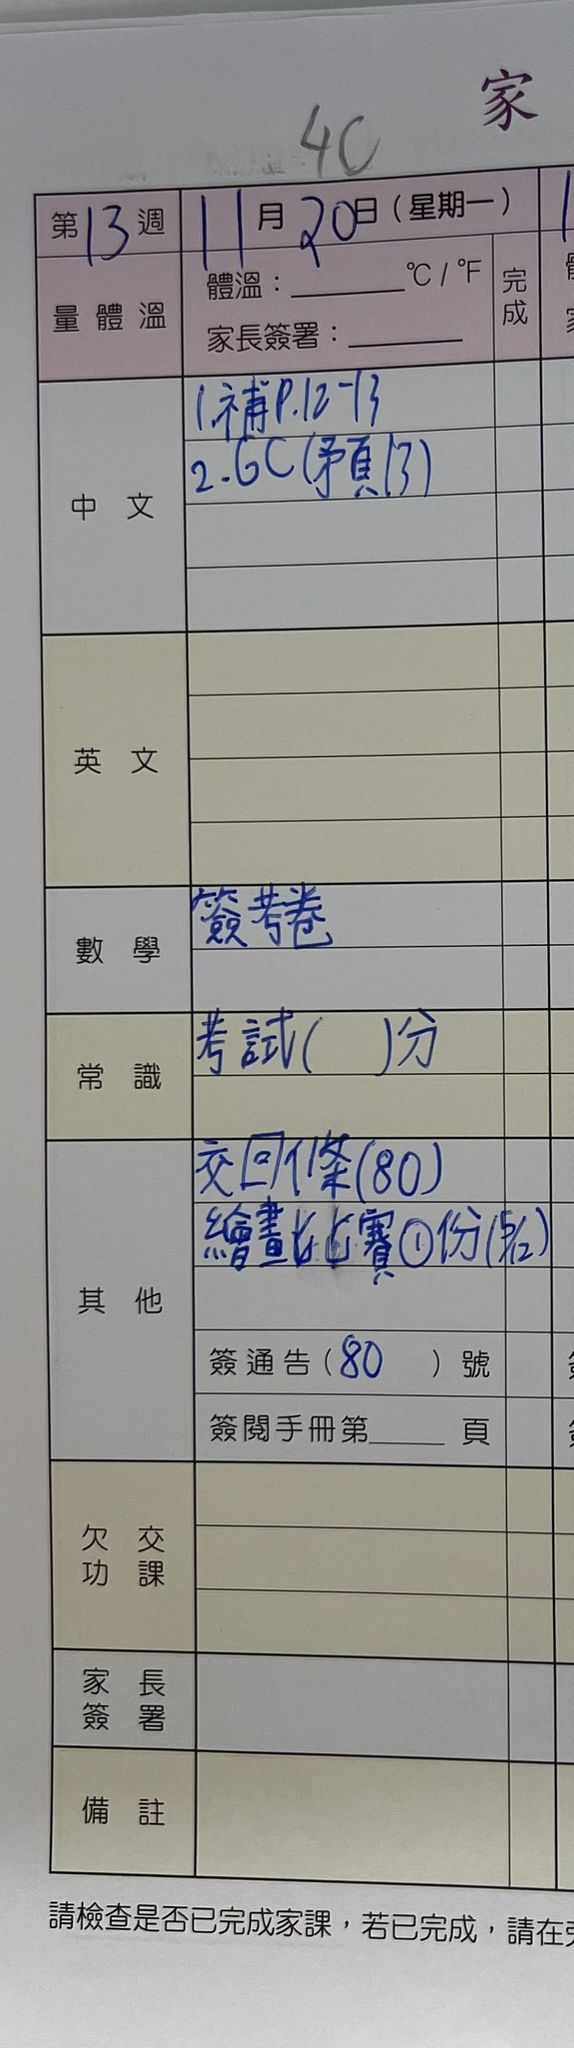 家
4C
第13週 11月20日(星期一)
量體溫 體溫：______°C/°F 完成
家長簽署：______
中文
1.補P.12-13
2.GC(預13)
英文
數學
簽考卷
常識
考試( )分
其他
交回條(80)
繪畫比賽①份(5/12)
簽通告(80)號
簽閱手冊第____頁
欠交功課
家長簽署
備註
請檢查是否已完成家課，若已完成，請在